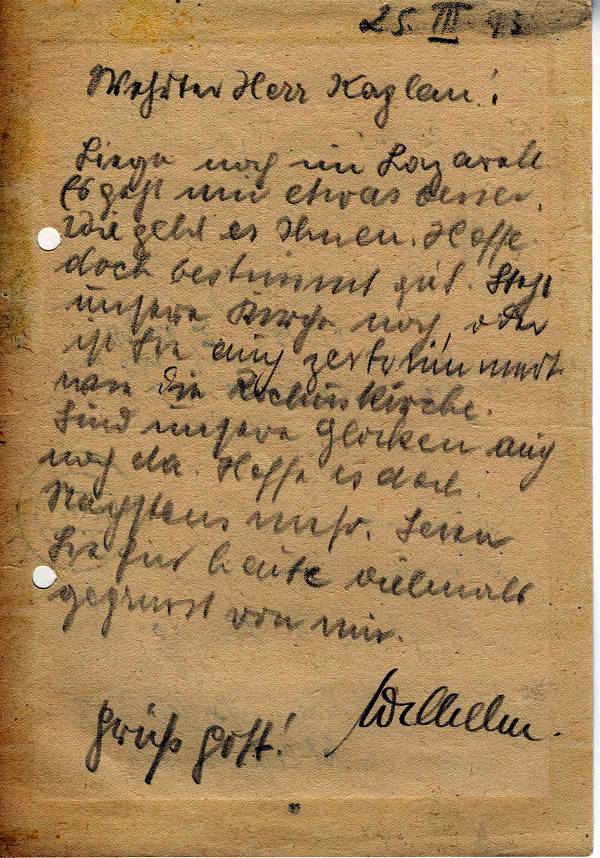 25. III. 43.
Wehrter Herr Kaplan!
Liege noch im Lazarett
Es geht mir etwas besser,
Wie geht es Ihnen. Hoffe
doch bestimmt gut. Steht
unsere Kirche noch, oder
ist Sie auch zertrümmert
wie die Rochuskirche.
Sind unsere Glocken auch
noch da. Hoffe es doch.
Nächstens mehr. Seien
Sie für heute vielmals
gegrüsst von mir.
Wilhelm.
Grüß Gott!